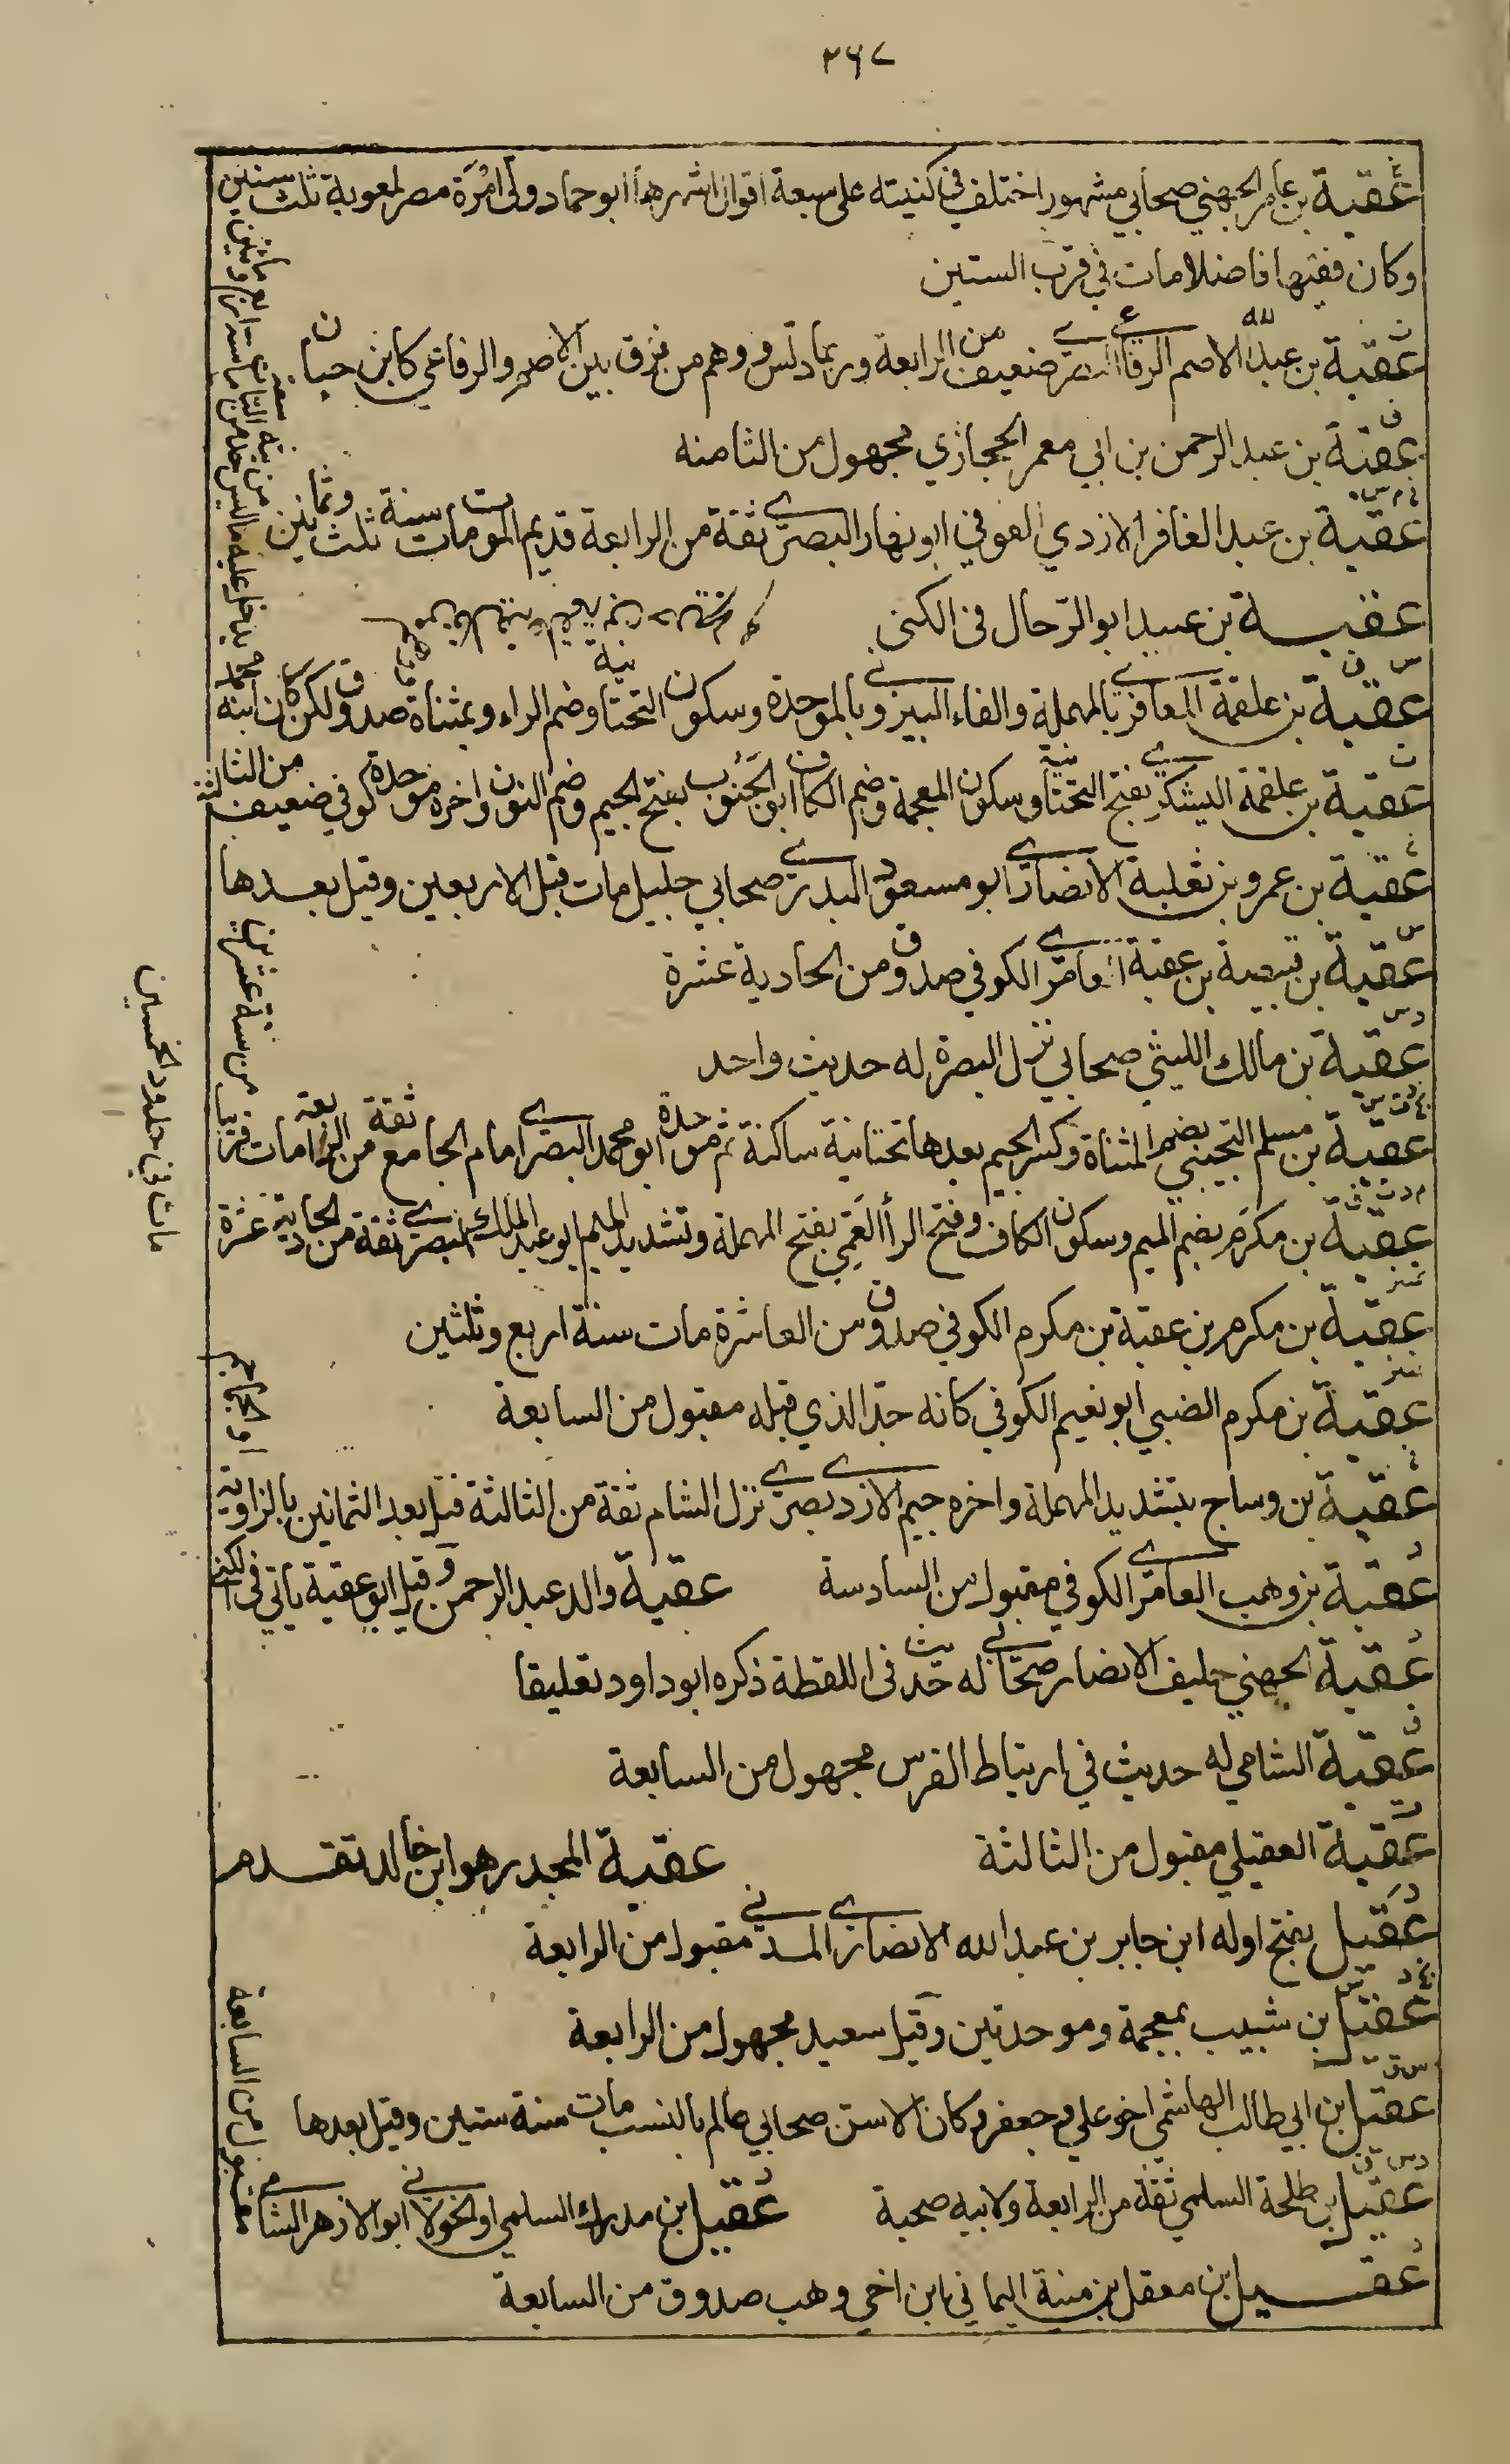 ٢٦٧
عقبة بن عامر الجهني صحابي مشهور اختلف في كنيته على سبعة اقوال اشهرها ابو حماد ولى امرة مصر لمعوية ثلث سنين
وكان فقيها فاضلا مات في قرب الستين
عقبة بن عبد الله الاصم الرفاعي البصري ضعيف من الرابعة وربما دلس ووهم من فرق بين الاصم والرفاعي كابن حبان
عقبة بن عبد الرحمن بن ابي معمر الحجازي مجهول من الثامنه
عقبة بن عبد الغافر الازدي العوفي ابو نهار البصري ثقة من الرابعة قديم الموت مات سنة ثلث وثمانين
عقبة بن عبيد ابو الرحال في الكنى
عقبة بن علقمة المعافري بالمهملة والفاء البيروني بالموحدة وسكون التحتانية وضم الراء وبمثناة صدوق ولكن كان ابنه
عقبة بن علقمة اليشكري بفتح التحتانية وسكون المعجمة وضم الكاف ابو الجنوب بفتح الجيم وضم النون واخره موحدة كوفي ضعيف من الثالثة
عقبة بن عمرو بن ثعلبة الانصاري ابو مسعود البدري صحابي جليل مات قبل الاربعين وقيل بعدها
عقبة بن قبيصة بن عقبة العامري الكوفي صدوق من الحادية عشرة
عقبة بن مالك الليثي صحابي نزل البصرة له حديث واحد
عقبة بن مسلم التجيبي بضم المثناة وكسر الجيم بعدها تحتانية ساكنة ثم موحدة ابو محمد البصري امام الجامع ثقة من الرابعة مات قريبا
من سنة عشرين
عقبة بن مكرم بضم الميم وسكون الكاف وفتح الرأ العمي بفتح المهملة وتشديد الميم ابو عبد الملك البصري ثقة من الحادية عشرة
مات في حدود الخمسين
عقبة بن مكرم بن عقبة بن مكرم الكوفي صدوق من العاشرة مات سنة اربع وثلثين
عقبة بن مكرم الضبي ابو نعيم الكوفي كانه جد الذي قبله مقبول من السابعة
عقبة بن وساج بتشديد المهملة واخره جيم الازدي بصري نزل الشام ثقة من الثالثة قتل بعد الثمانين بالزاوية
او الجماجم
عقبة بن وهب العامري الكوفي مقبول من السادسة عقبة والد عبد الرحمن وقيل ابو عقبة ياتي في الكنى
عقبة الجهني حليف الانصار صحابي له حديث في اللقطة ذكره ابو داود تعليقا
عقبة الشامي له حديث في ارتباط الفرس مجهول من السابعة
عقبة العقيلي مقبول من الثالثة عقبة المجدر هو ابن خالد تقدم
عقيل بفتح اوله ابن جابر بن عبد الله الانصاري المدني مقبول من الرابعة
عقيل بن شبيب بمعجمة وموحدتين وقيل سعيد مجهول من الرابعة
عقيل بن ابي طالب الهاشمي اخو علي وجعفر وكان الاسن صحابي عالم بالنسب مات سنة ستين وقيل بعدها
عقيل بن طلحة السلمي ثقة من الرابعة ولابيه صحبة عقيل بن مدرك السلمي او الخولاني ابو الازهر الشامي
مقبول من السابعة
عقيل بن معقل بن منبة اليماني ابن اخي وهب صدوق من السابعة